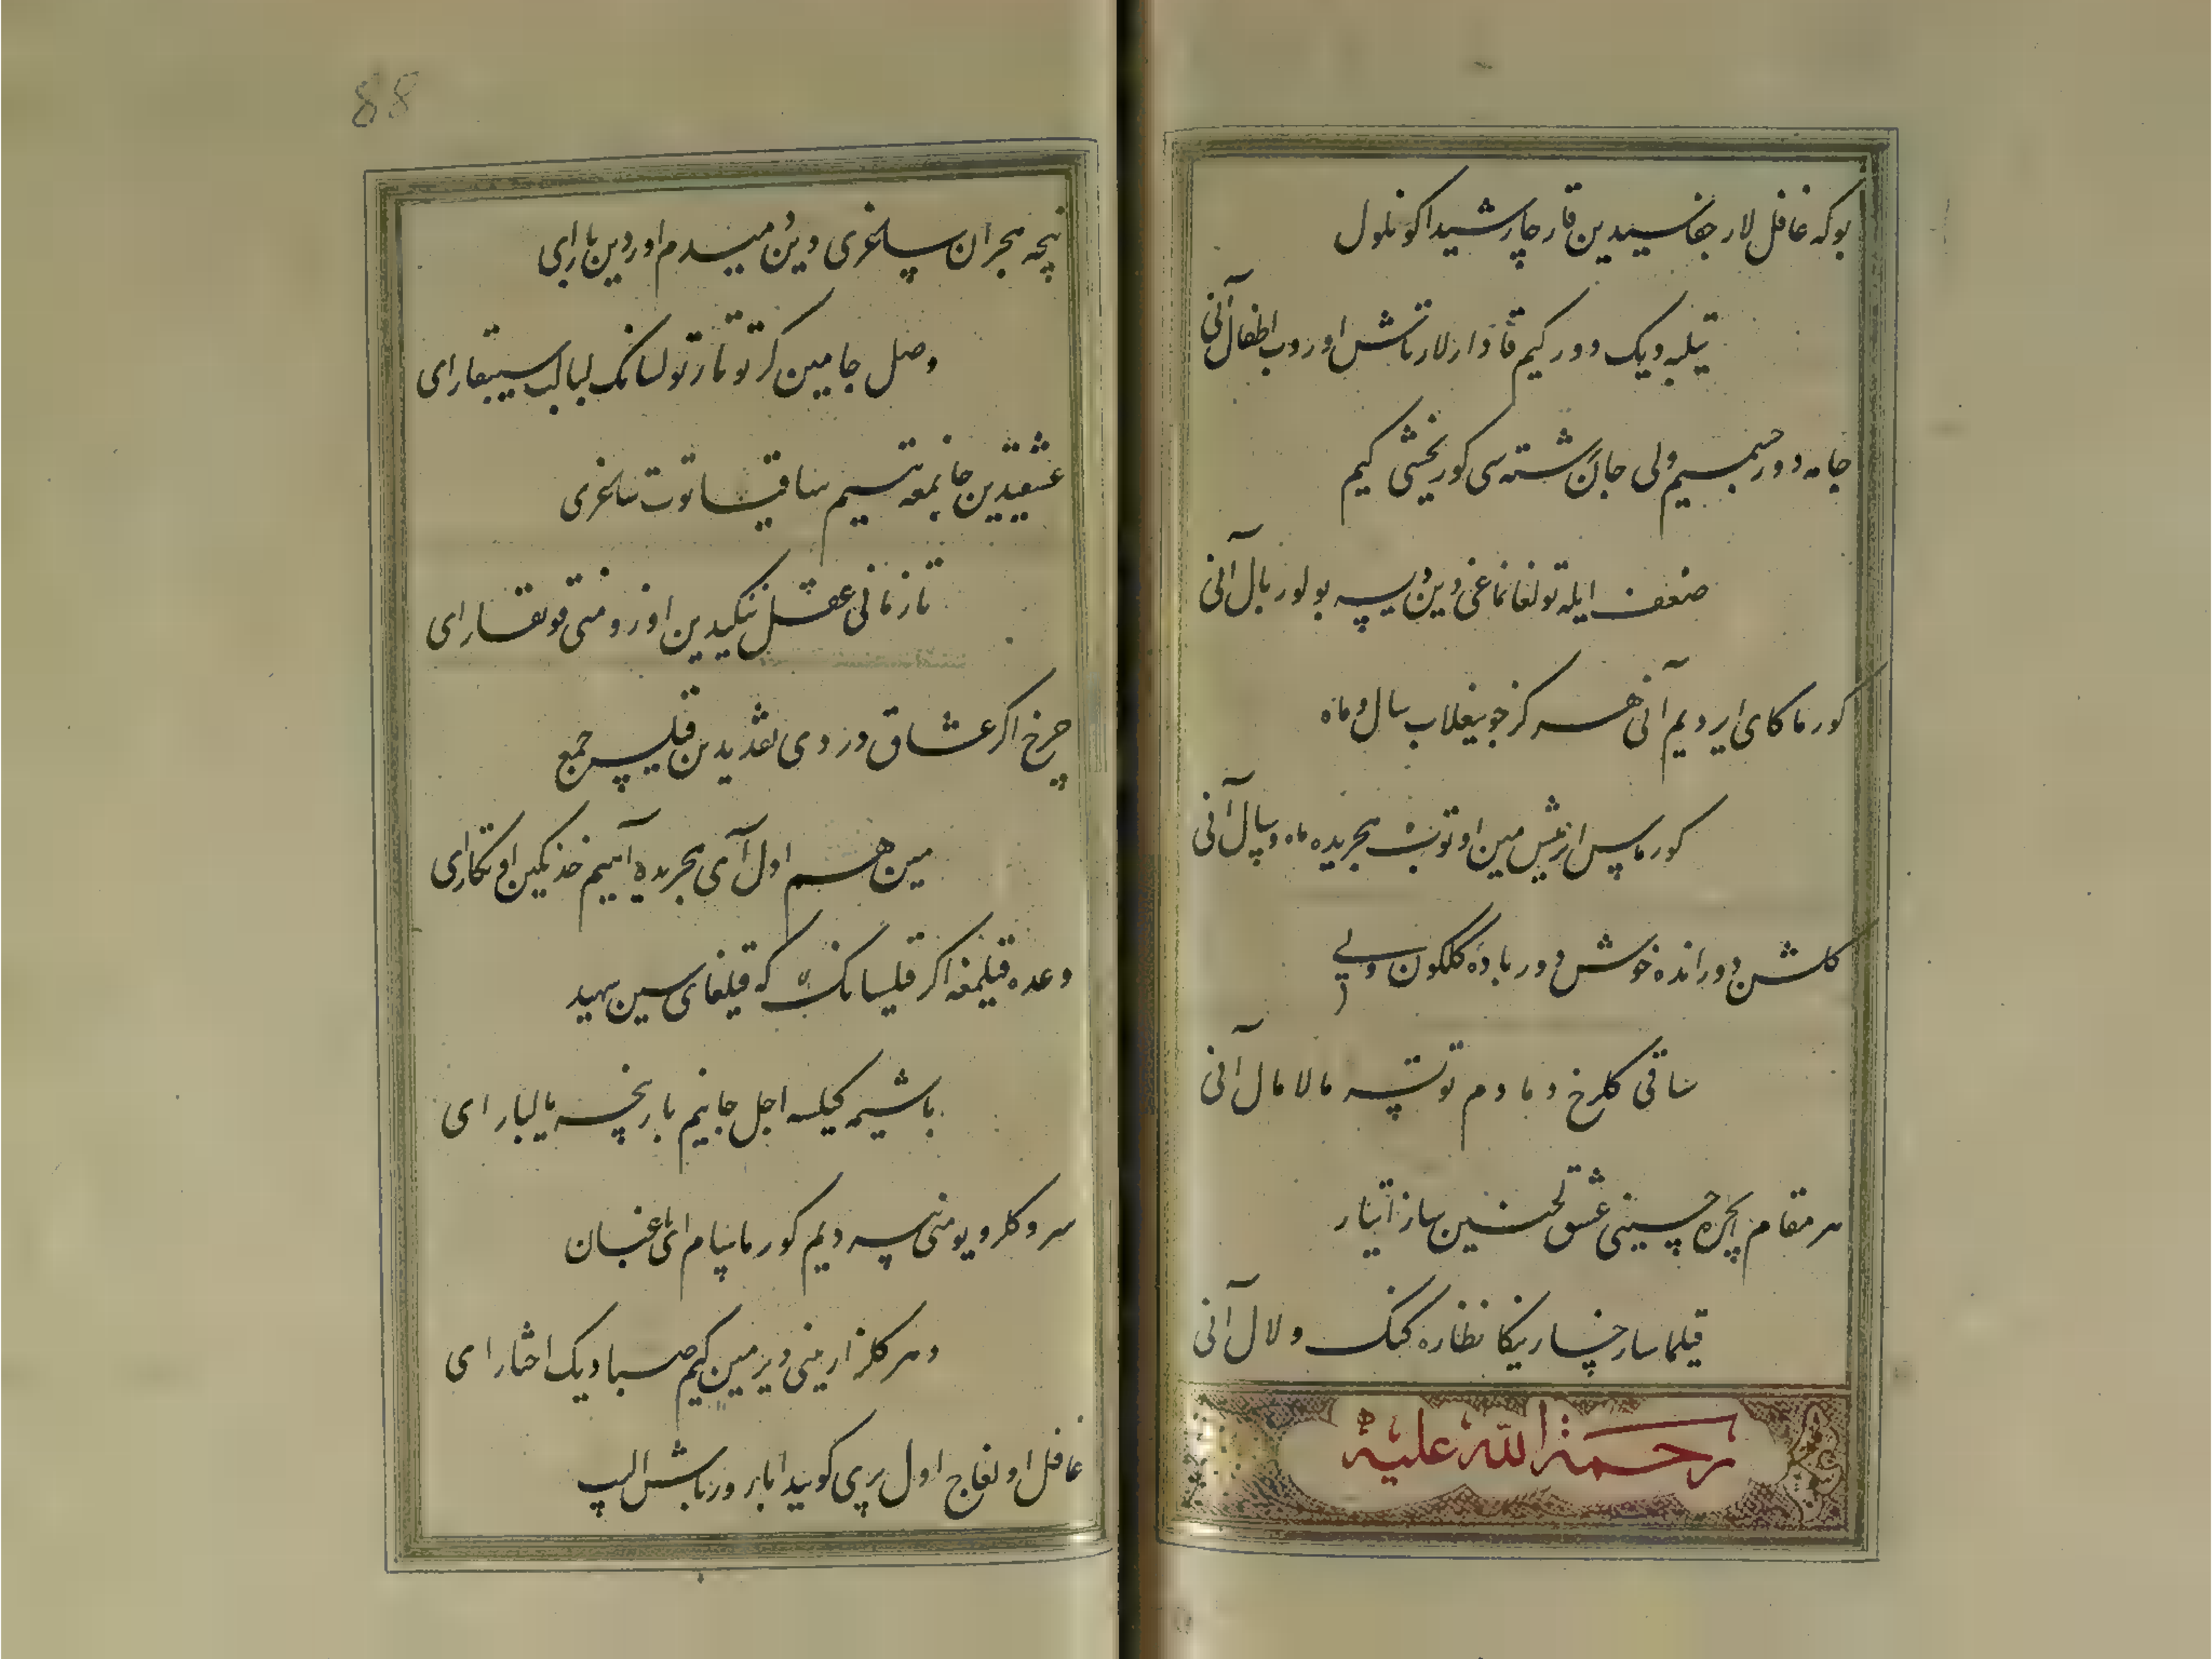 بوکه غافل لار جفاسیدین قار چار شیدا کونلول
تیلبه دیک دور کیم قاوارلار تاش اوروب اطفال آنی
جامه دور جسمیم ولی جان رشته سی کور یخشی کیم
ضعف ایله تولغانماغی دین پیسه بولور بال آنی
کورماکای ایردیم آنی هر کز جو ییغلاب سال و ماه
کورماس ایرمیش مین اوتوب هجریده ماه و سال آنی
کلشن دوراندہ خوش دور باده کلکون ولی
ساقی کلرخ دمادم توتسه مالامال آنی
هر مقام ایچره حسینی عشق لحنین ساز ایتار
قیلماسا رخسارینکا نظاره کنک و لال آنی
رحمة الله علیه
88
نیچه هجران ساغری دین میدم اوردین بارای
وصل جامین کر توتار تولسانک لبالب سیبقارای
عشقیدین جانیمغه یتسیم ساقیا توت ساغری
تا زمانی عقل ننکیدین اوزومنی قوتقارای
چرخ اکر عشاق دردی نقدیدین قلیپ جمع
مین هم اول آی هجریده آهیم خدنکین اوتکارای
وعده قیلمغه اکر قیلسانک که قیلغای سین شهید
باشیمه کیلسه اجل جانیم باریخه یالبارای
سرو کلرویومنی سه دیم کورماسام ای باغبان
هر کلزارینی دیرمین کیم صبا دیک اختارای
غافل اولغاج اول پری کوییدا بارور باش الیپ